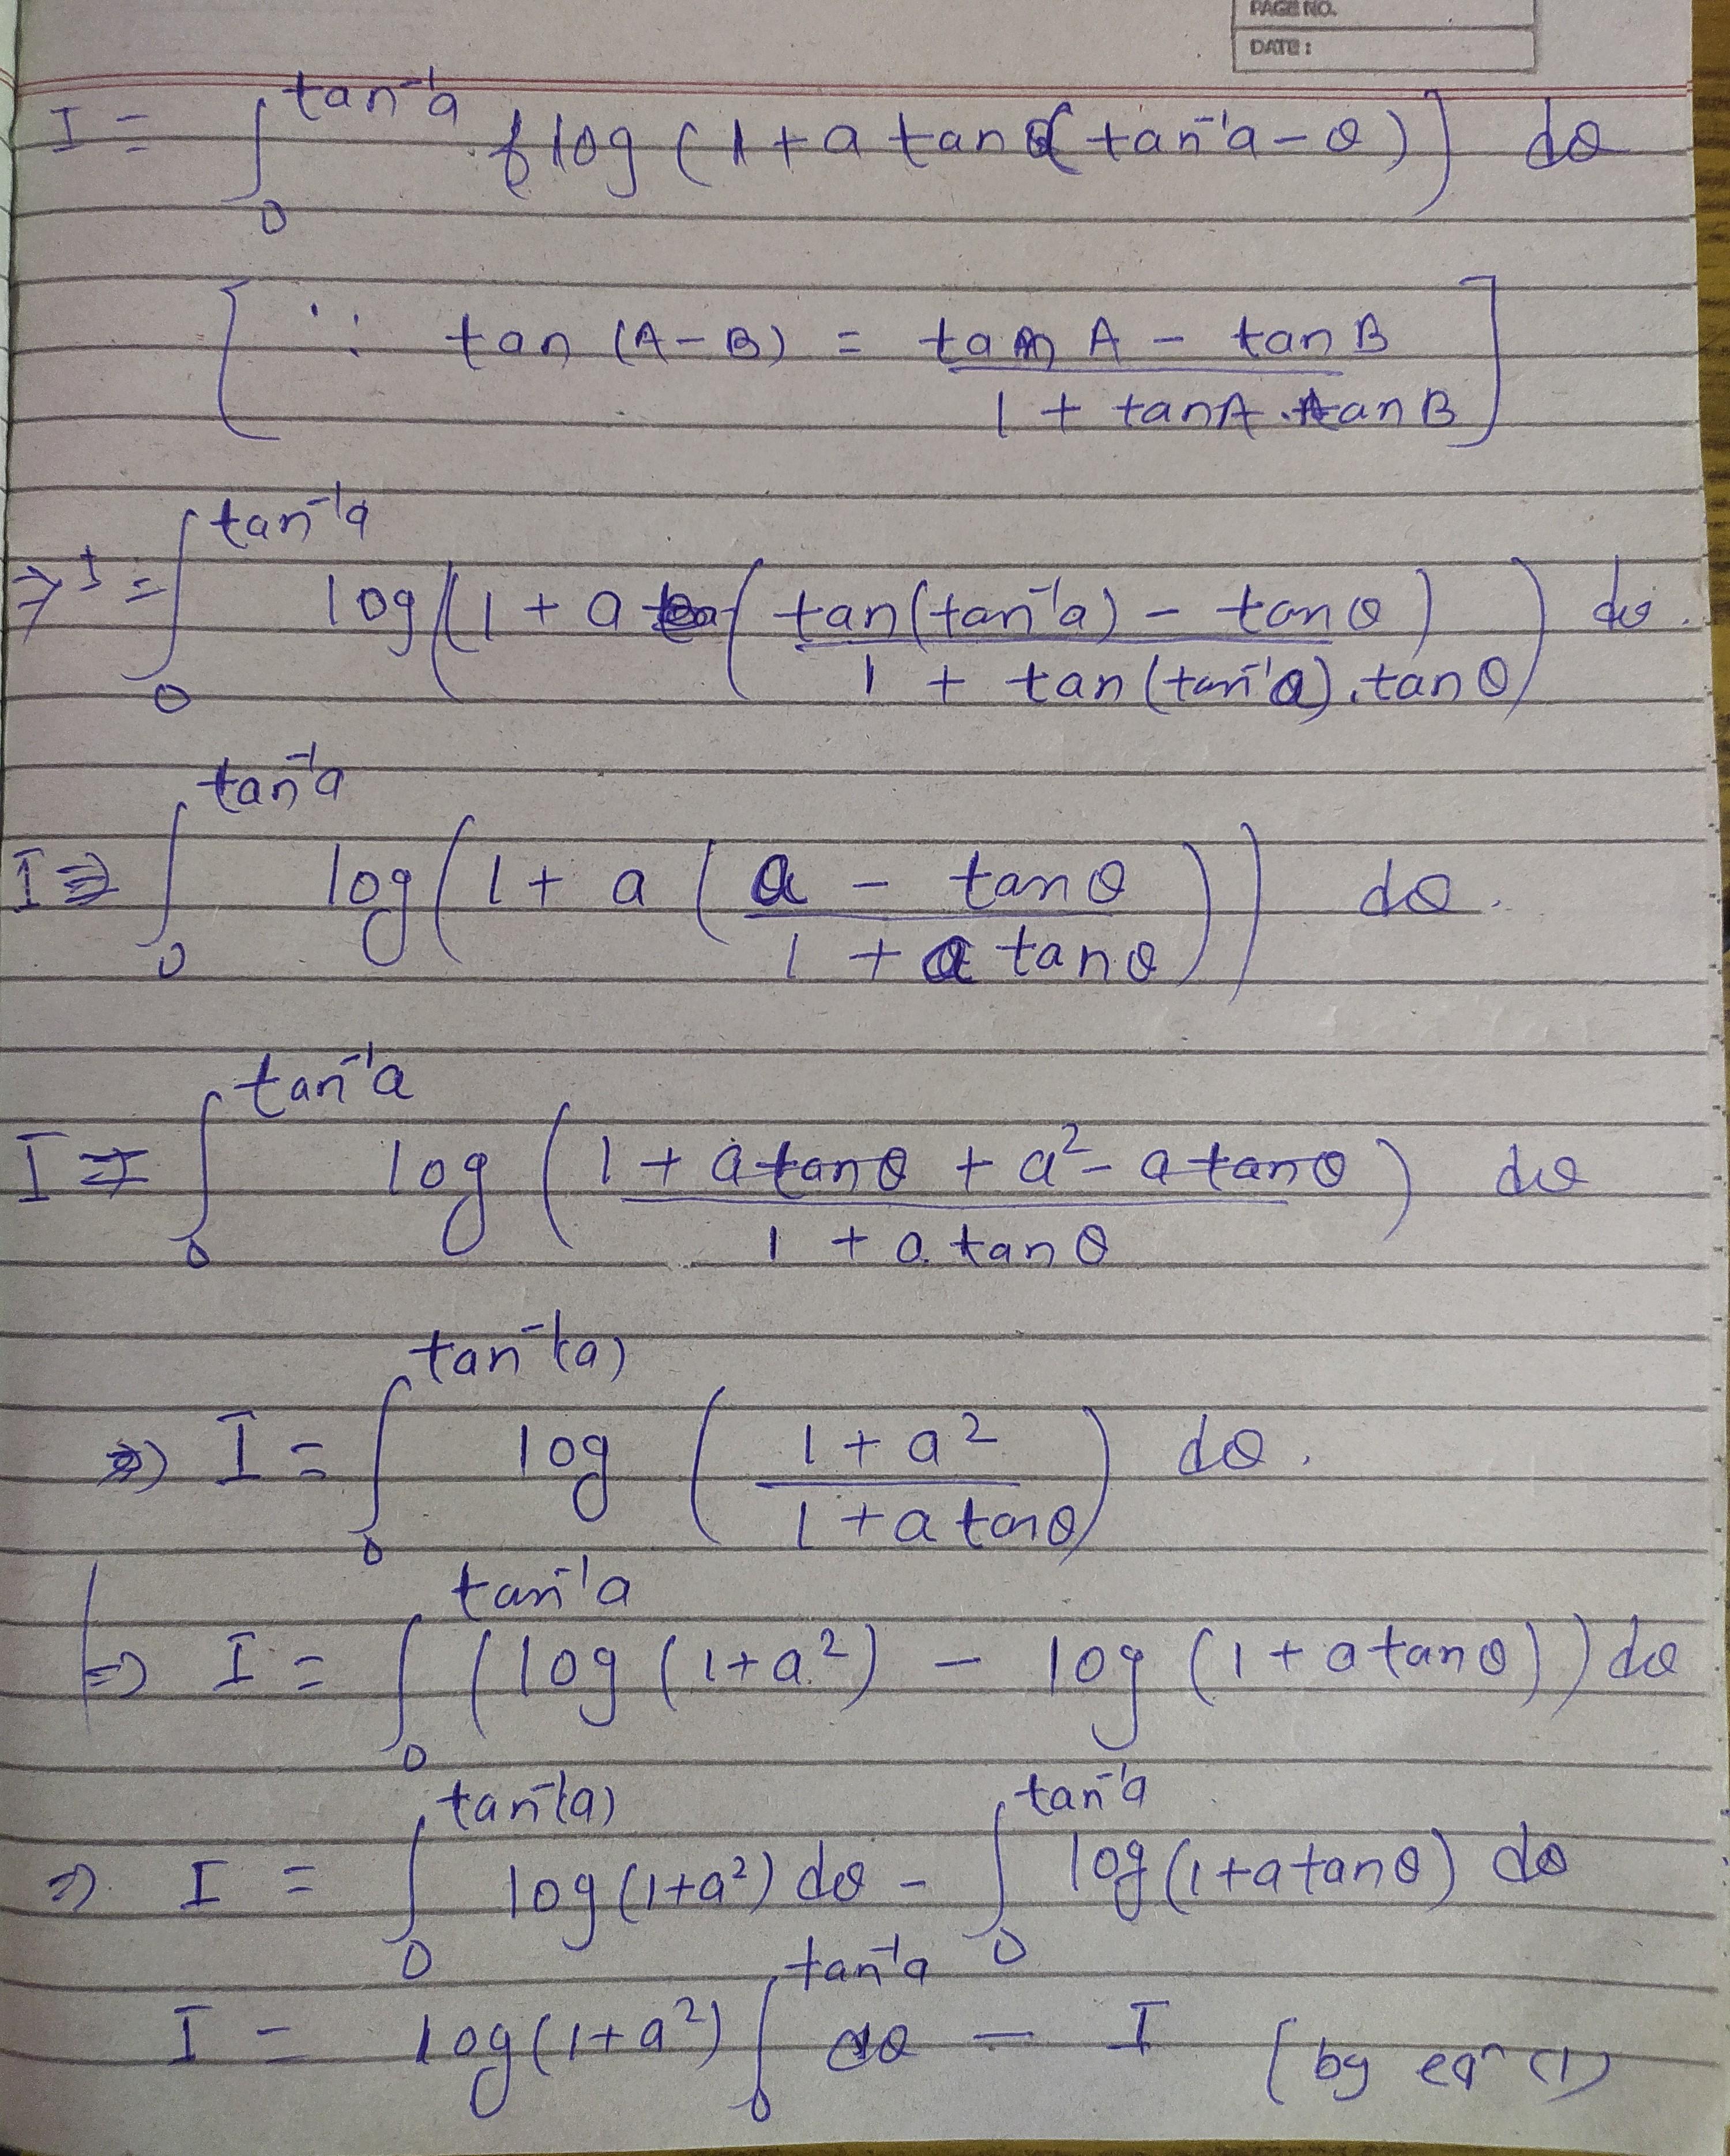 PAGE NO.
DATE :
I = ∫₀^{tan⁻¹a} log (1 + a tan (tan⁻¹a - θ)] dθ
[∵ tan (A - B) = (tan A - tan B) / (1 + tan A . tan B)]
⇒ I = ∫₀^{tan⁻¹a} log (1 + a ((tan(tan⁻¹a) - tan θ) / (1 + tan(tan⁻¹a) . tan θ))) dθ.
I = ∫₀^{tan⁻¹a} log (1 + a ((a - tan θ) / (1 + a tan θ))) dθ.
I = ∫₀^{tan⁻¹a} log ((1 + a tan θ + a² - a tan θ) / (1 + a tan θ)) dθ
⇒ I = ∫₀^{tan⁻¹(a)} log ((1 + a²) / (1 + a tan θ)) dθ.
⇒ I = ∫₀^{tan⁻¹a} (log (1+a²) - log (1 + a tan θ)) dθ
⇒ I = ∫₀^{tan⁻¹(a)} log (1+a²) dθ - ∫₀^{tan⁻¹a} log (1+a tan θ) dθ
I = log(1+a²) ∫₀^{tan⁻¹a} dθ - I (by eqⁿ (1)